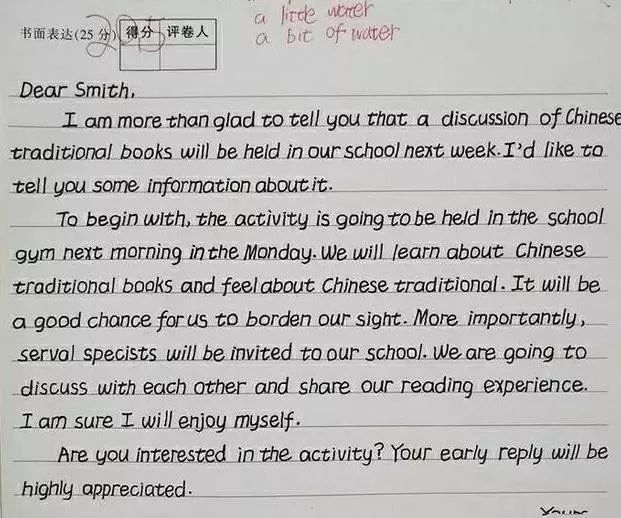 a little water
书面表达(25分) 得分 评卷人
a bit of water
Dear Smith,
I am more than glad to tell you that a discussion of Chinese
traditional books will be held in our school next week. I'd like to
tell you some information about it.
To begin with, the activity is going to be held in the school
gym next morning in the Monday. We will learn about Chinese
traditional books and feel about Chinese traditional. It will be
a good chance for us to borden our sight. More importantly,
serval specists will be invited to our school. We are going to
discuss with each other and share our reading experience.
I am sure I will enjoy myself.
Are you interested in the activity? Your early reply will be
highly appreciated.